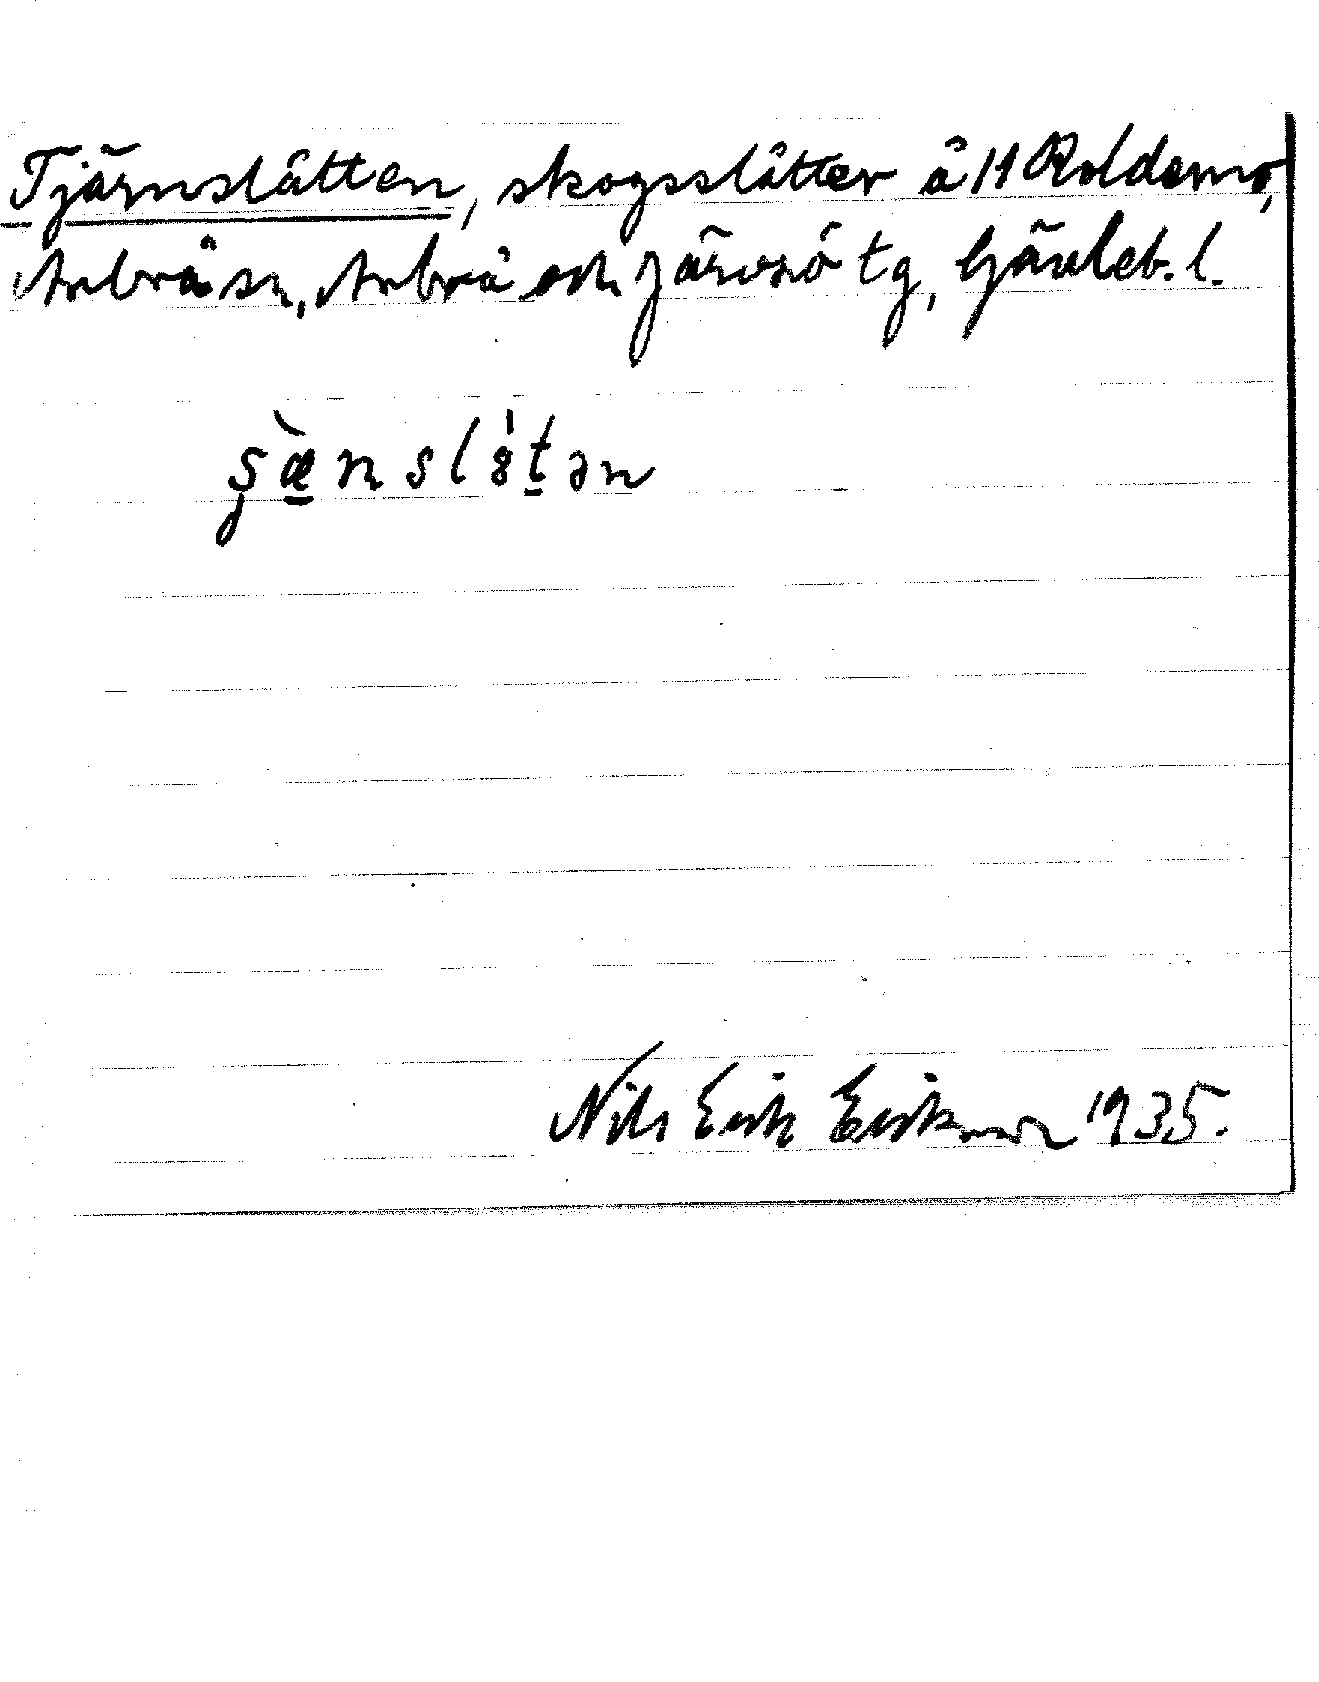 Tjärnslåtten, skogsslåtter å 11 Koldemo,
Arbrå sn, Arbrå och Järvsö tg, Gävleb. l.
Nils Erik Eriksson 1935.